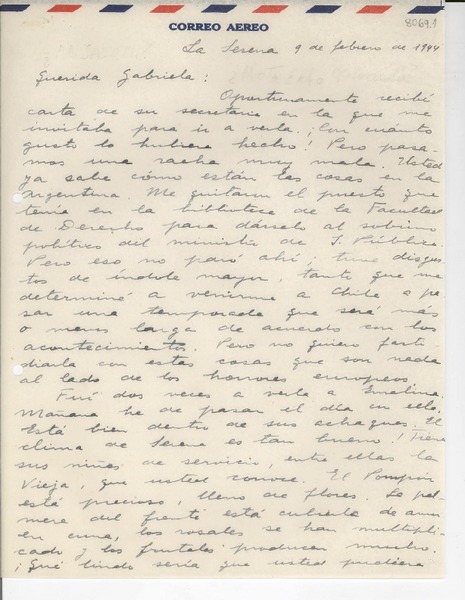 CORREO AEREO
8069.1
La Serena 9 de febrero de 1944
Querida Gabriela:
Oportunamente recibí
carta de su secretaria en la que me
invitaba para ir a verla. ¡Con cuánto
gusto lo hubiera hecho! Pero pasa-
mos una racha muy mala. Usted
ya sabe cómo están las cosas en la
Argentina. Me quitaron el puesto que
tenía en la biblioteca de la Facultad
de Derecho para dárselo al sobrino
político del ministro de I. Pública.
Pero eso no paró ahí; tuve disgus-
tos de índole mayor, tanto que me
determiné a venirme a Chile a pa-
sar una temporada que será más
o menos larga de acuerdo con los
acontecimientos. Pero no quiero fasti-
diarla con estas cosas que son nada
al lado de los horrores europeos.
Fuí dos veces a verla a Emelina.
Mañana he de pasar el día con ella.
Está bien dentro de sus achaques. El
clima de Serena es tan bueno! Tiene
sus niñas de servicio, entre ellas la
Vieja, que usted conoce. El
está precioso, lleno de flores. La pal-
mera del frente está cubierta de
en cuna, los rosales se han multipli-
cado y los frutales producen mucho.
¡Qué lindo sería que usted pudiera